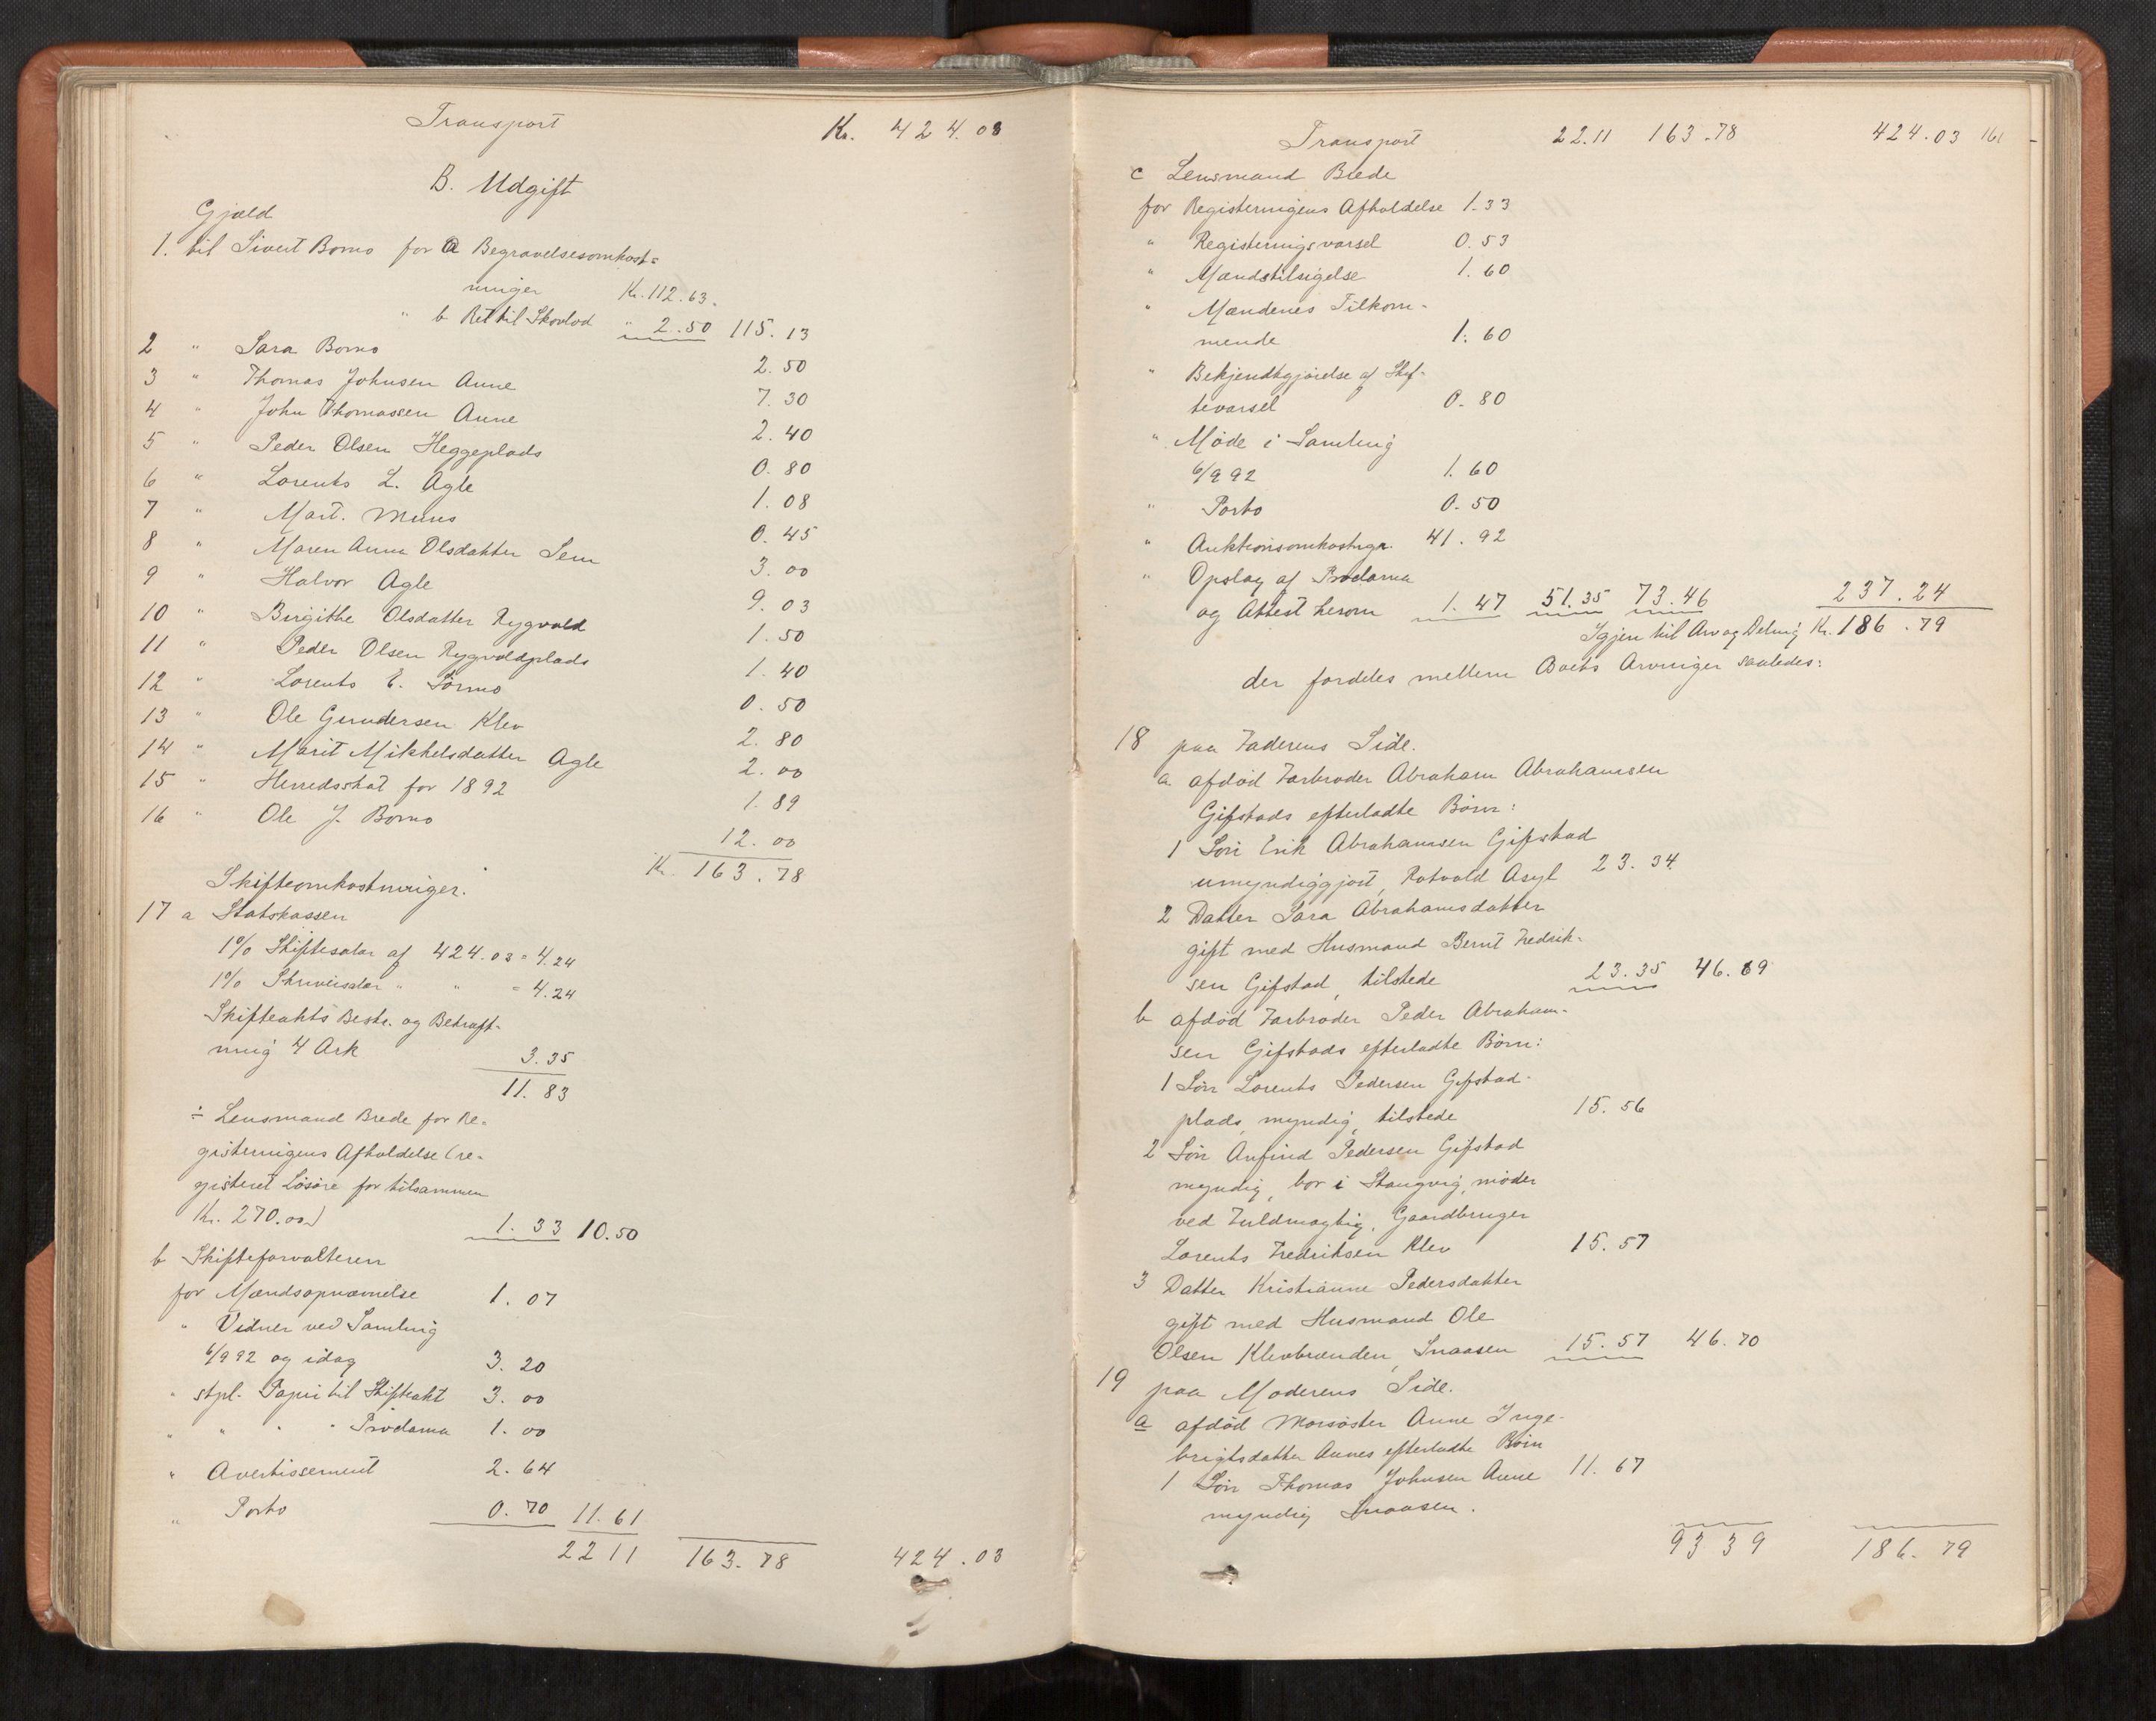 Transport Kr. 424.03
B. Udgift
Gjæld
1. til Sivert Bomo for a Begravelsesomkost=
ninger Kr. 112.63.
" b Ret til Skovlod " 2.50 115.13
2 " Sara Bomo 2.50
3 " Thomas Johnsen Aune 7.30
4 " John Thomassen Aune 2.40
5 " Peder Olsen Heggeplads 0.80
6 " Lorents L. Agle 1.08
7 " Mart. Muus 0.45
8 " Maren Anna Olsdatter Sem 3.00
9 " Halvor Agle 9.03
10 " Birgithe Olsdatter Rygvold 1.50
11 " Peder Olsen Rygvoldplads 1.40
12 " Lorents E. Sørmo 0.50
13 " Ole Gundersen Klev 2.80
14 " Marit Mikkelsdatter Agle 2.00
15 " Herredsskat for 1892 1.89
16 " Ole J. Bomo 12.00
Kr. 163.78
Skifteomkostninger.
17 a Statskassen
1% Skiftesalær af 424.03 = 4.24
1% Skriversalær " " = 4.24
Skifteakts Beskr. og Bekræft-
ning 4 Ark 3.35
11.83
÷ Lensmand Brede for Re-
gisteringens Afholdelse (re-
gisteret Løsøre for tilsammen
Kr. 270.00) 1.33 10.50
b Skifteforvalteren
for Mændsopnævnelse 1.07
" Vidner ved Samling
6/9 92 og idag 3.20
" stpl. Papir til Skifteakt 3.00
" " " " Proclama 1.00
" Avertissement 2.64
" Porto 0.70 11.61
22 11 163.78 424.03
Transport 22.11 163.78 424.03 161
c Lensmand Brede
for Registeringens Afholdelse 1.33
" Registeringsvarsel 0.53
" Mændstilsigelse 1.60
" Mændenes Tilkom-
mende 1.60
" Bekjendtgjørelse af Skif-
tevarsel 0.80
" Møde i Samling
6/9 92 1.60
" Porto 0.50
" Auktionsomkostngr. 41.92
" Opslag af Proclama
og Attest herom 1.47 51.35 73.46 237.24
Igjen til Arv og Deling Kr. 186.79
der fordeles mellem Boets Arvinger saaledes:
18 paa Faderens Side.
a afdød Farbroder Abraham Abrahamsen
Gifstads efterladte Børn:
1 Søn Erik Abrahamsen Gifstad
umyndiggjort, Rotvold Asyl 23.34
2 Datter Sara Abrahamsdatter
gift med Husmand Bernt Fredrik-
sen Gifstad, tilstede 23.35 46.69
b afdød Farbroder Peder Abraham-
sen Gifstads efterladte Børn:
1 Søn Lorents Pedersen Gifstad-
plads, myndig, tilstede 15.56
2 Søn Anfind Pedersen Gifstad
myndig, bor i Stangvig, møder
ved Fuldmægtig, Gaardbruger
Lorents Fredriksen Klev 15.57
3 Datter Kristianne Pedersdatter
gift med Husmand Ole
Olsen Klevbrenden, Snaasen 15.57 46.70
19 paa Moderens Side.
a afdød Morsøster Anne Inge-
brigtsdatter Aunes efterladte Børn
1 Søn Thomas Johnsen Aune 11.67
myndig Snaasen.
93 39 186.79